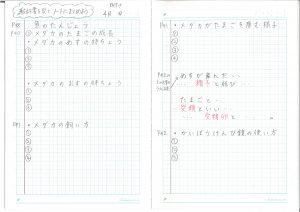 教科書を見て、ノートにまとめよう
4月 日
魚のたんじょう
・メダカのたまごの成長
・メダカのめすの特ちょう
①
②
③
・メダカのおすの特ちょう
①
②
③
P41 ・メダカの飼い方
①
②
③
④
P41 ・メダカがたまごを産む様子
①
②
③
④
めすが産んだ‥‥
‥‥ 精子と結び
たまごと‥
受精といい‥‥
‥‥ 受精卵と‥‥
P42 ・かいぼうけんび鏡の使い方
①
②
③
④